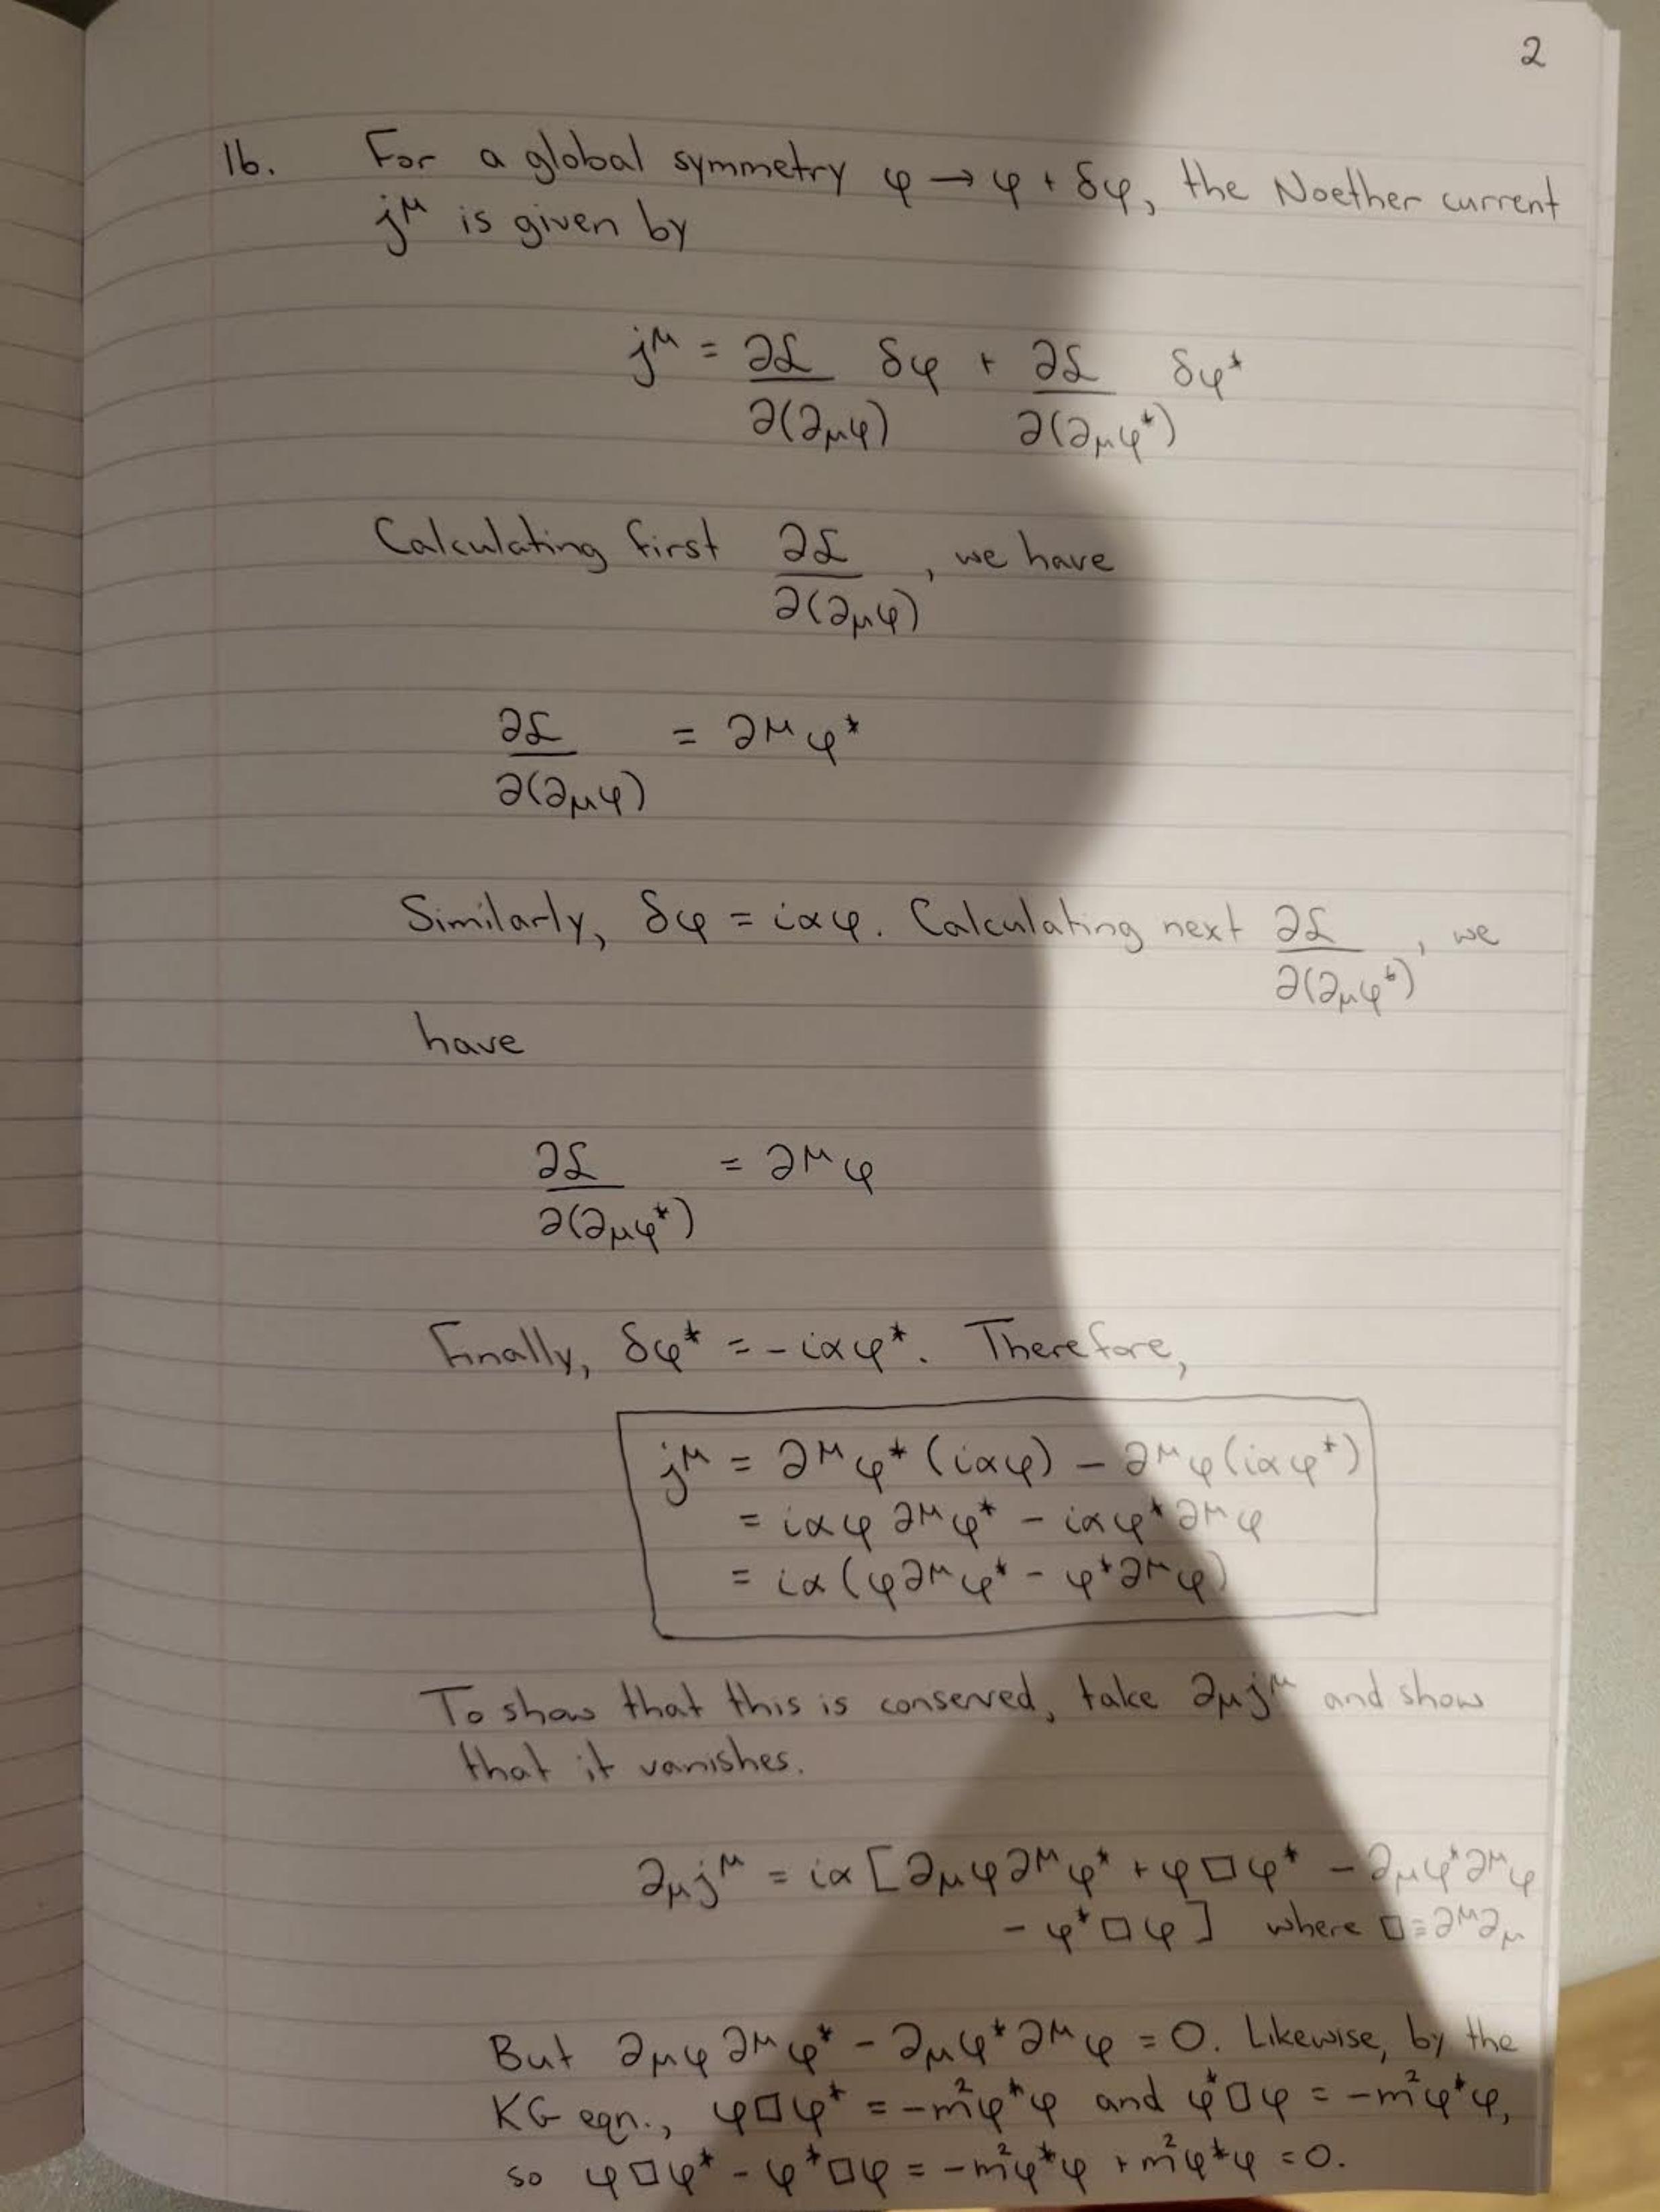 2
1b. For a global symmetry φ → φ + δφ, the Noether current
j^μ is given by
j^μ = ∂ℒ/∂(∂_μφ) δφ + ∂ℒ/∂(∂_μφ*) δφ*
Calculating first ∂ℒ/∂(∂_μφ), we have
∂ℒ/∂(∂_μφ) = ∂^μφ*
Similarly, δφ = iαφ. Calculating next ∂ℒ/∂(∂_μφ*), we
have
∂ℒ/∂(∂_μφ*) = ∂^μφ
Finally, δφ* = -iαφ*. Therefore,
j^μ = ∂^μφ*(iαφ) - ∂^μφ(iαφ*)
= iαφ∂^μφ* - iαφ*∂^μφ
= iα(φ∂^μφ* - φ*∂^μφ)
To show that this is conserved, take ∂_μj^μ and show
that it vanishes.
∂_μj^μ = iα[∂_μφ∂^μφ* + φ□φ* - ∂_μφ*∂^μφ
- φ*□φ] where □=∂^μ∂_μ
But ∂_μφ∂^μφ* - ∂_μφ*∂^μφ = 0. Likewise, by the
KG eqn., φ□φ* = -m²φ*φ and φ*□φ = -m²φ*φ,
so φ□φ* - φ*□φ = -m²φ*φ + m²φ*φ = 0.